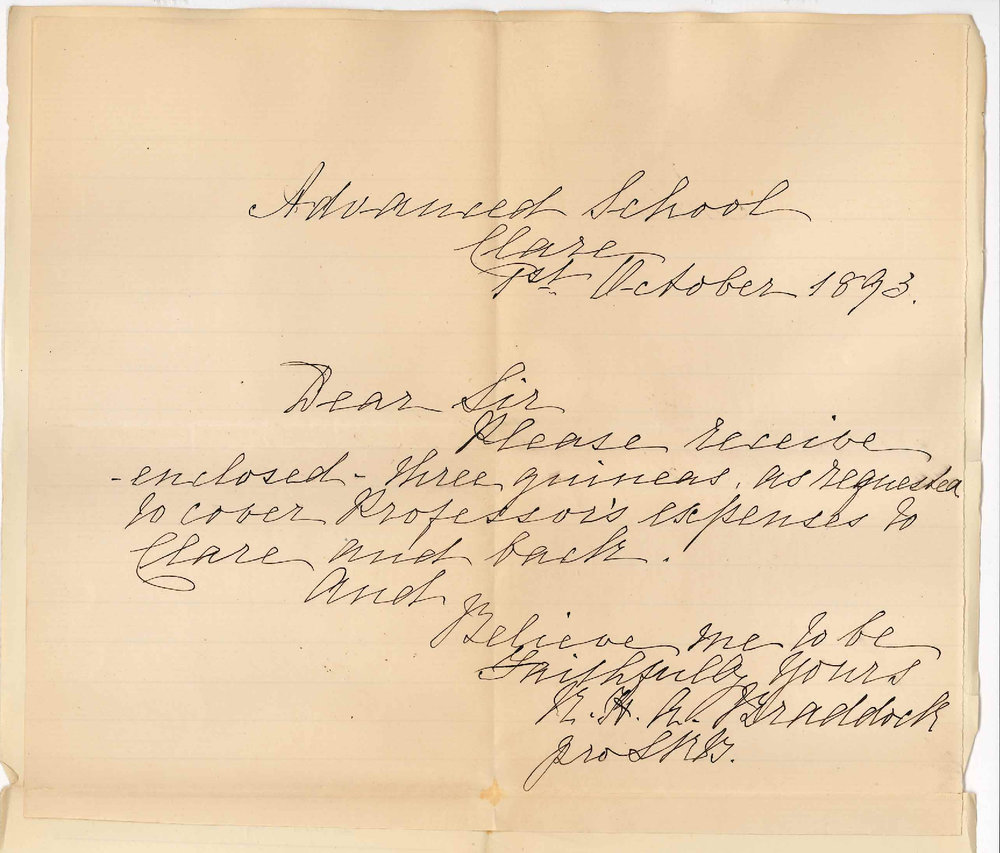 Advanced School
Clare
1st October 1893.
Dear Sir
Please receive
-enclosed- three guineas, as requested
to cover Professor's expenses to
Clare and back.
And
Believe me to be
Faithfully Yours
Braddock
pro